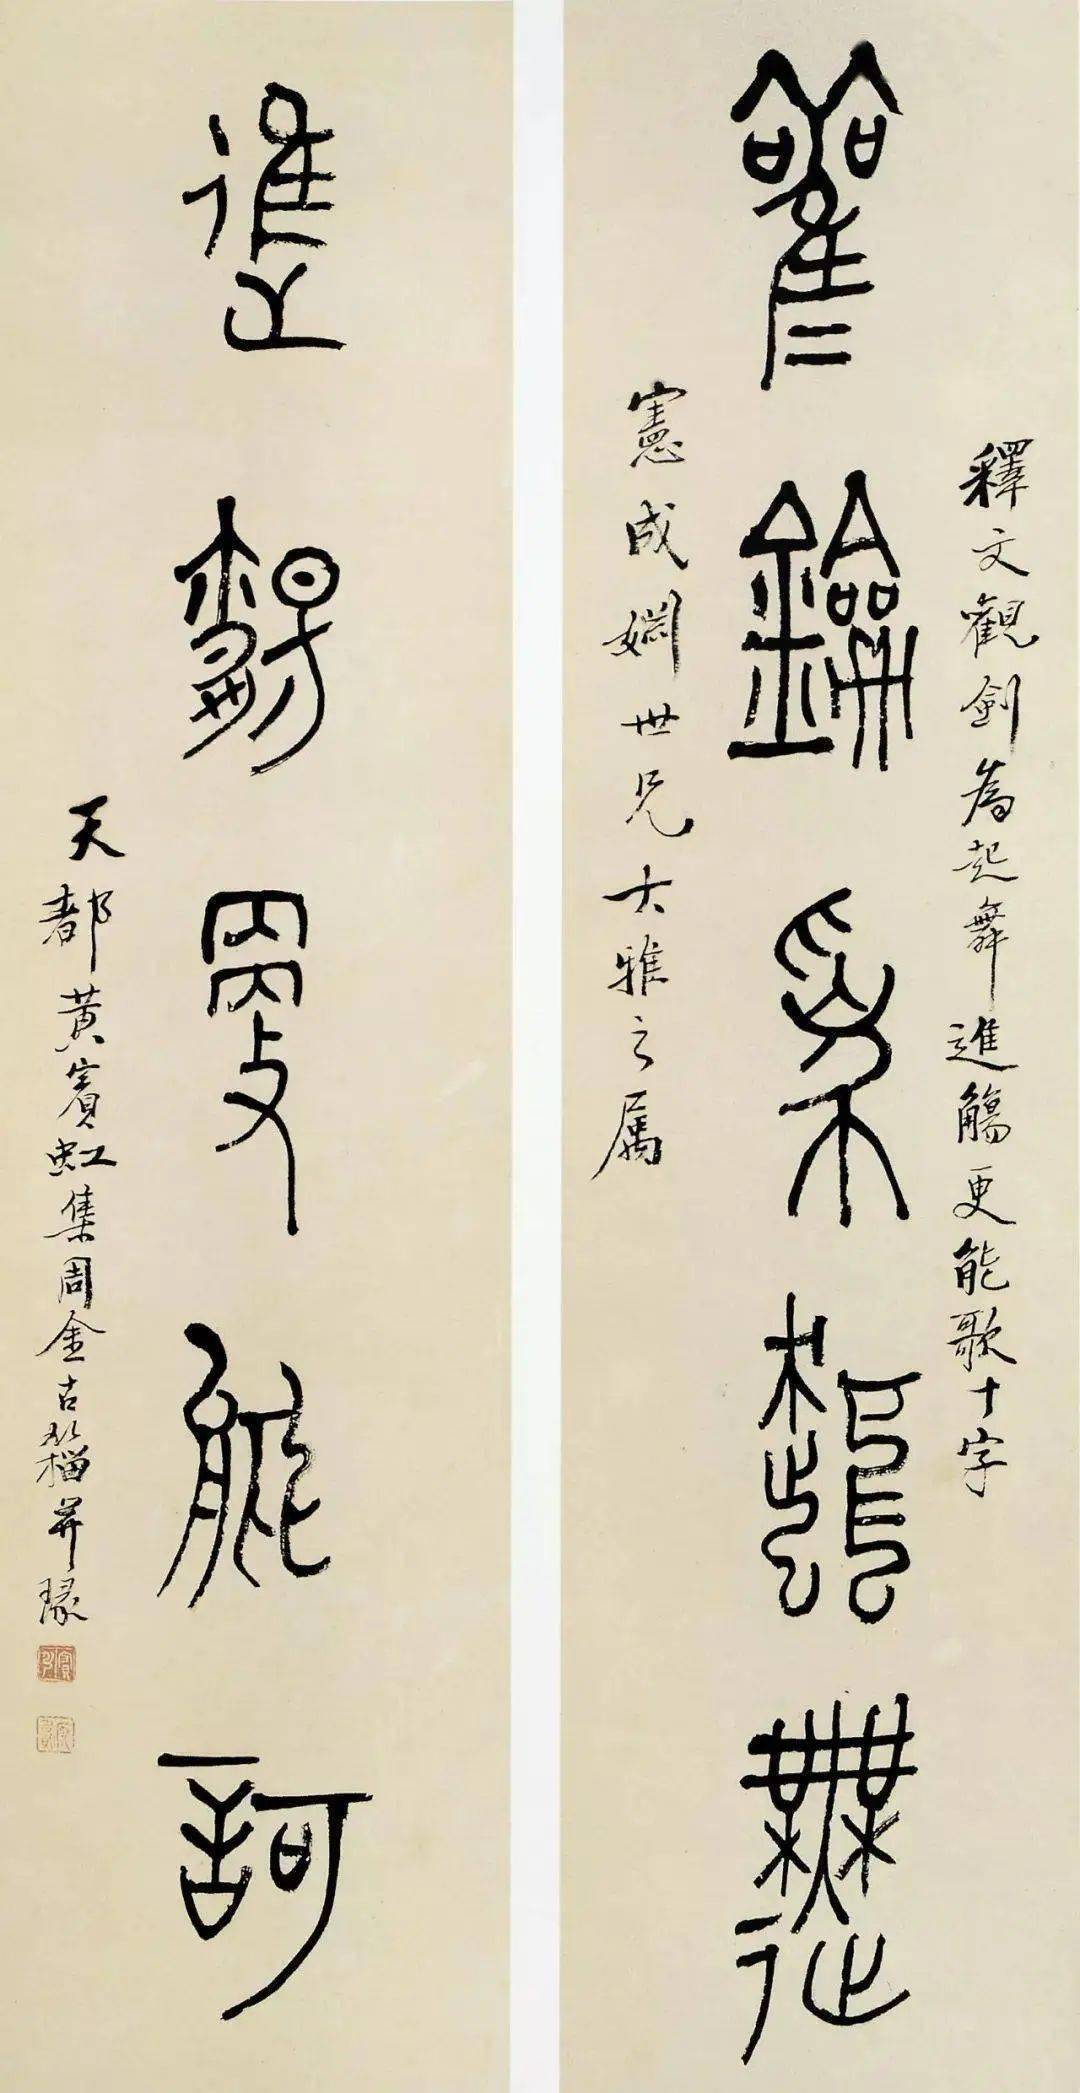 釋文觀劍為起舞進觴更能歌十字
觀劍為起舞
憲成婣世兄大雅之屬
進觴更能歌
天都黃賓虹集周金古籀并瑑